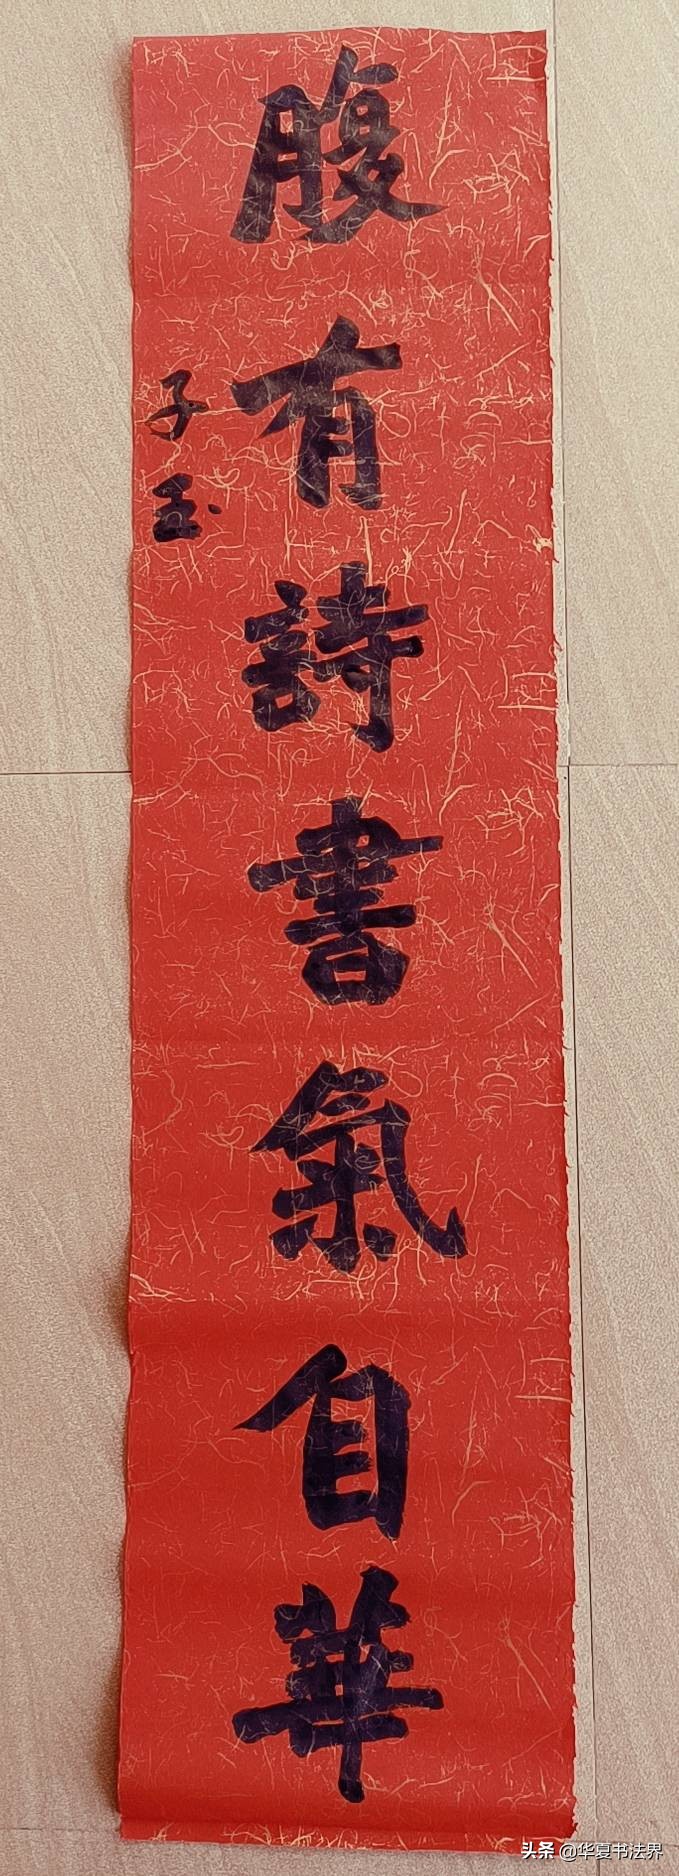 腹有詩書氣自華
子玉
头条 @华夏书法界